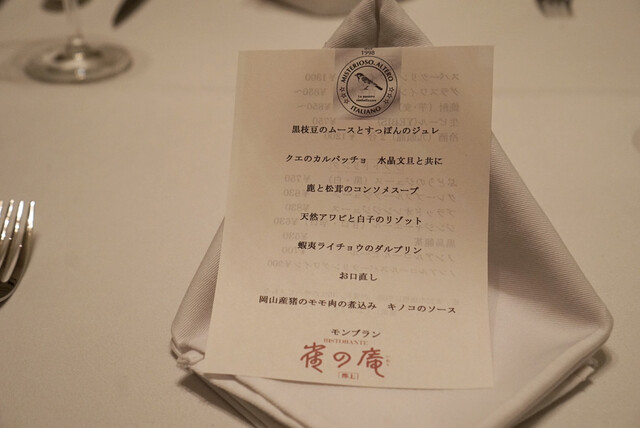 1998
MISTERIOSO ALTERO
ITALIANO
黒枝豆のムースとすっぽんのジュレ
クエのカルパッチョ 水晶文旦と共に
鹿と松茸のコンソメスープ
天然アワビと白子のリゾット
蝦夷ライチョウのダルブリン
お口直し
岡山産猪のモモ肉の煮込み キノコのソース
モンブラン
RISTORANTE
雀の庵